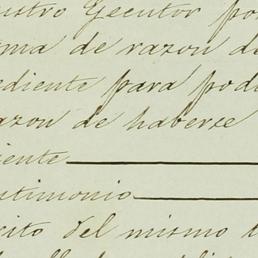 istro Ejecutor por
oma de razon de
ediente para pod
azon de haberse
iente
stimonio
cito del mismo